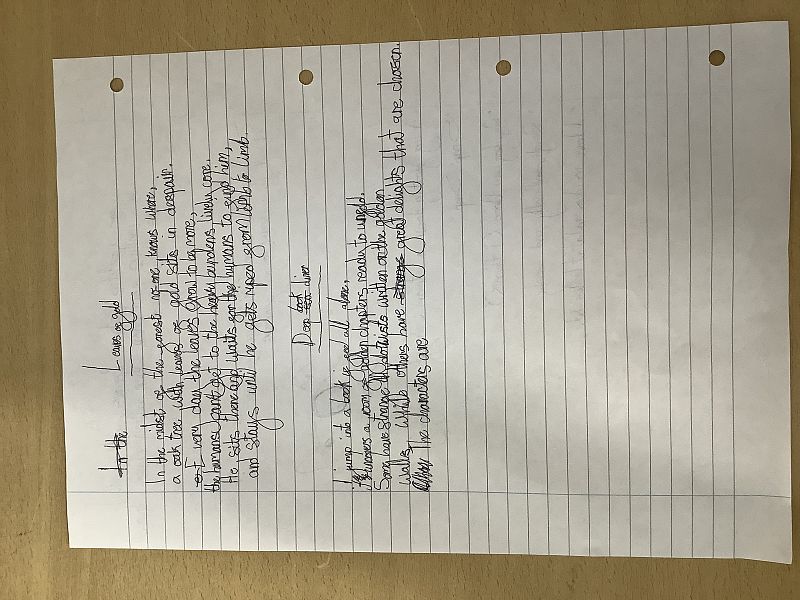 In the Leaves of gold
In the midst of the forest no-one knows where,
a oak tree with leaves of gold sits in despair.
very day the leaves grow to en more,
the humans paint get to the heavy burdens lively core.
He sits there and waits for the humans to find him,
and stays until he gets riped from limb to limb.
book
Dan
I jump into a book is god all alone,
uncovers a room of golden chapters ready to unfold.
Some have strange plot twists written on the golden
walls, While others have strange great delights that are chosen.
The characters are